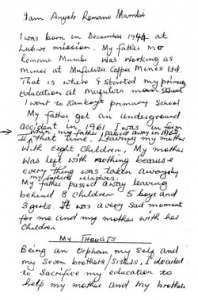 I am Angels Romane Mumba
I was born in December 1944 at
Lubwe mission. My father Mr
Romane Mumba was working as
miner at Mufulira Copper Mines Ltd.
That is where I started my primary
education at Mufulira school
I went to Kankoyo primary school
My father got an underground
accident in 1961 I was in form
when my father passed away in
that time. Leaving my mother
with Eight Children. My mother
was left with nothing because
every thing was taken away by
my father's relatives.
My father passed away leaving
behind 8 children 5 boys and
3 girls. It was a very sad moment
for me and my mother with her
Children
MY THOUGHTS
Being an Orphan my self and
my seven brothers/sisters, I decided
to sacrifice my education to
help my mother and my brothers